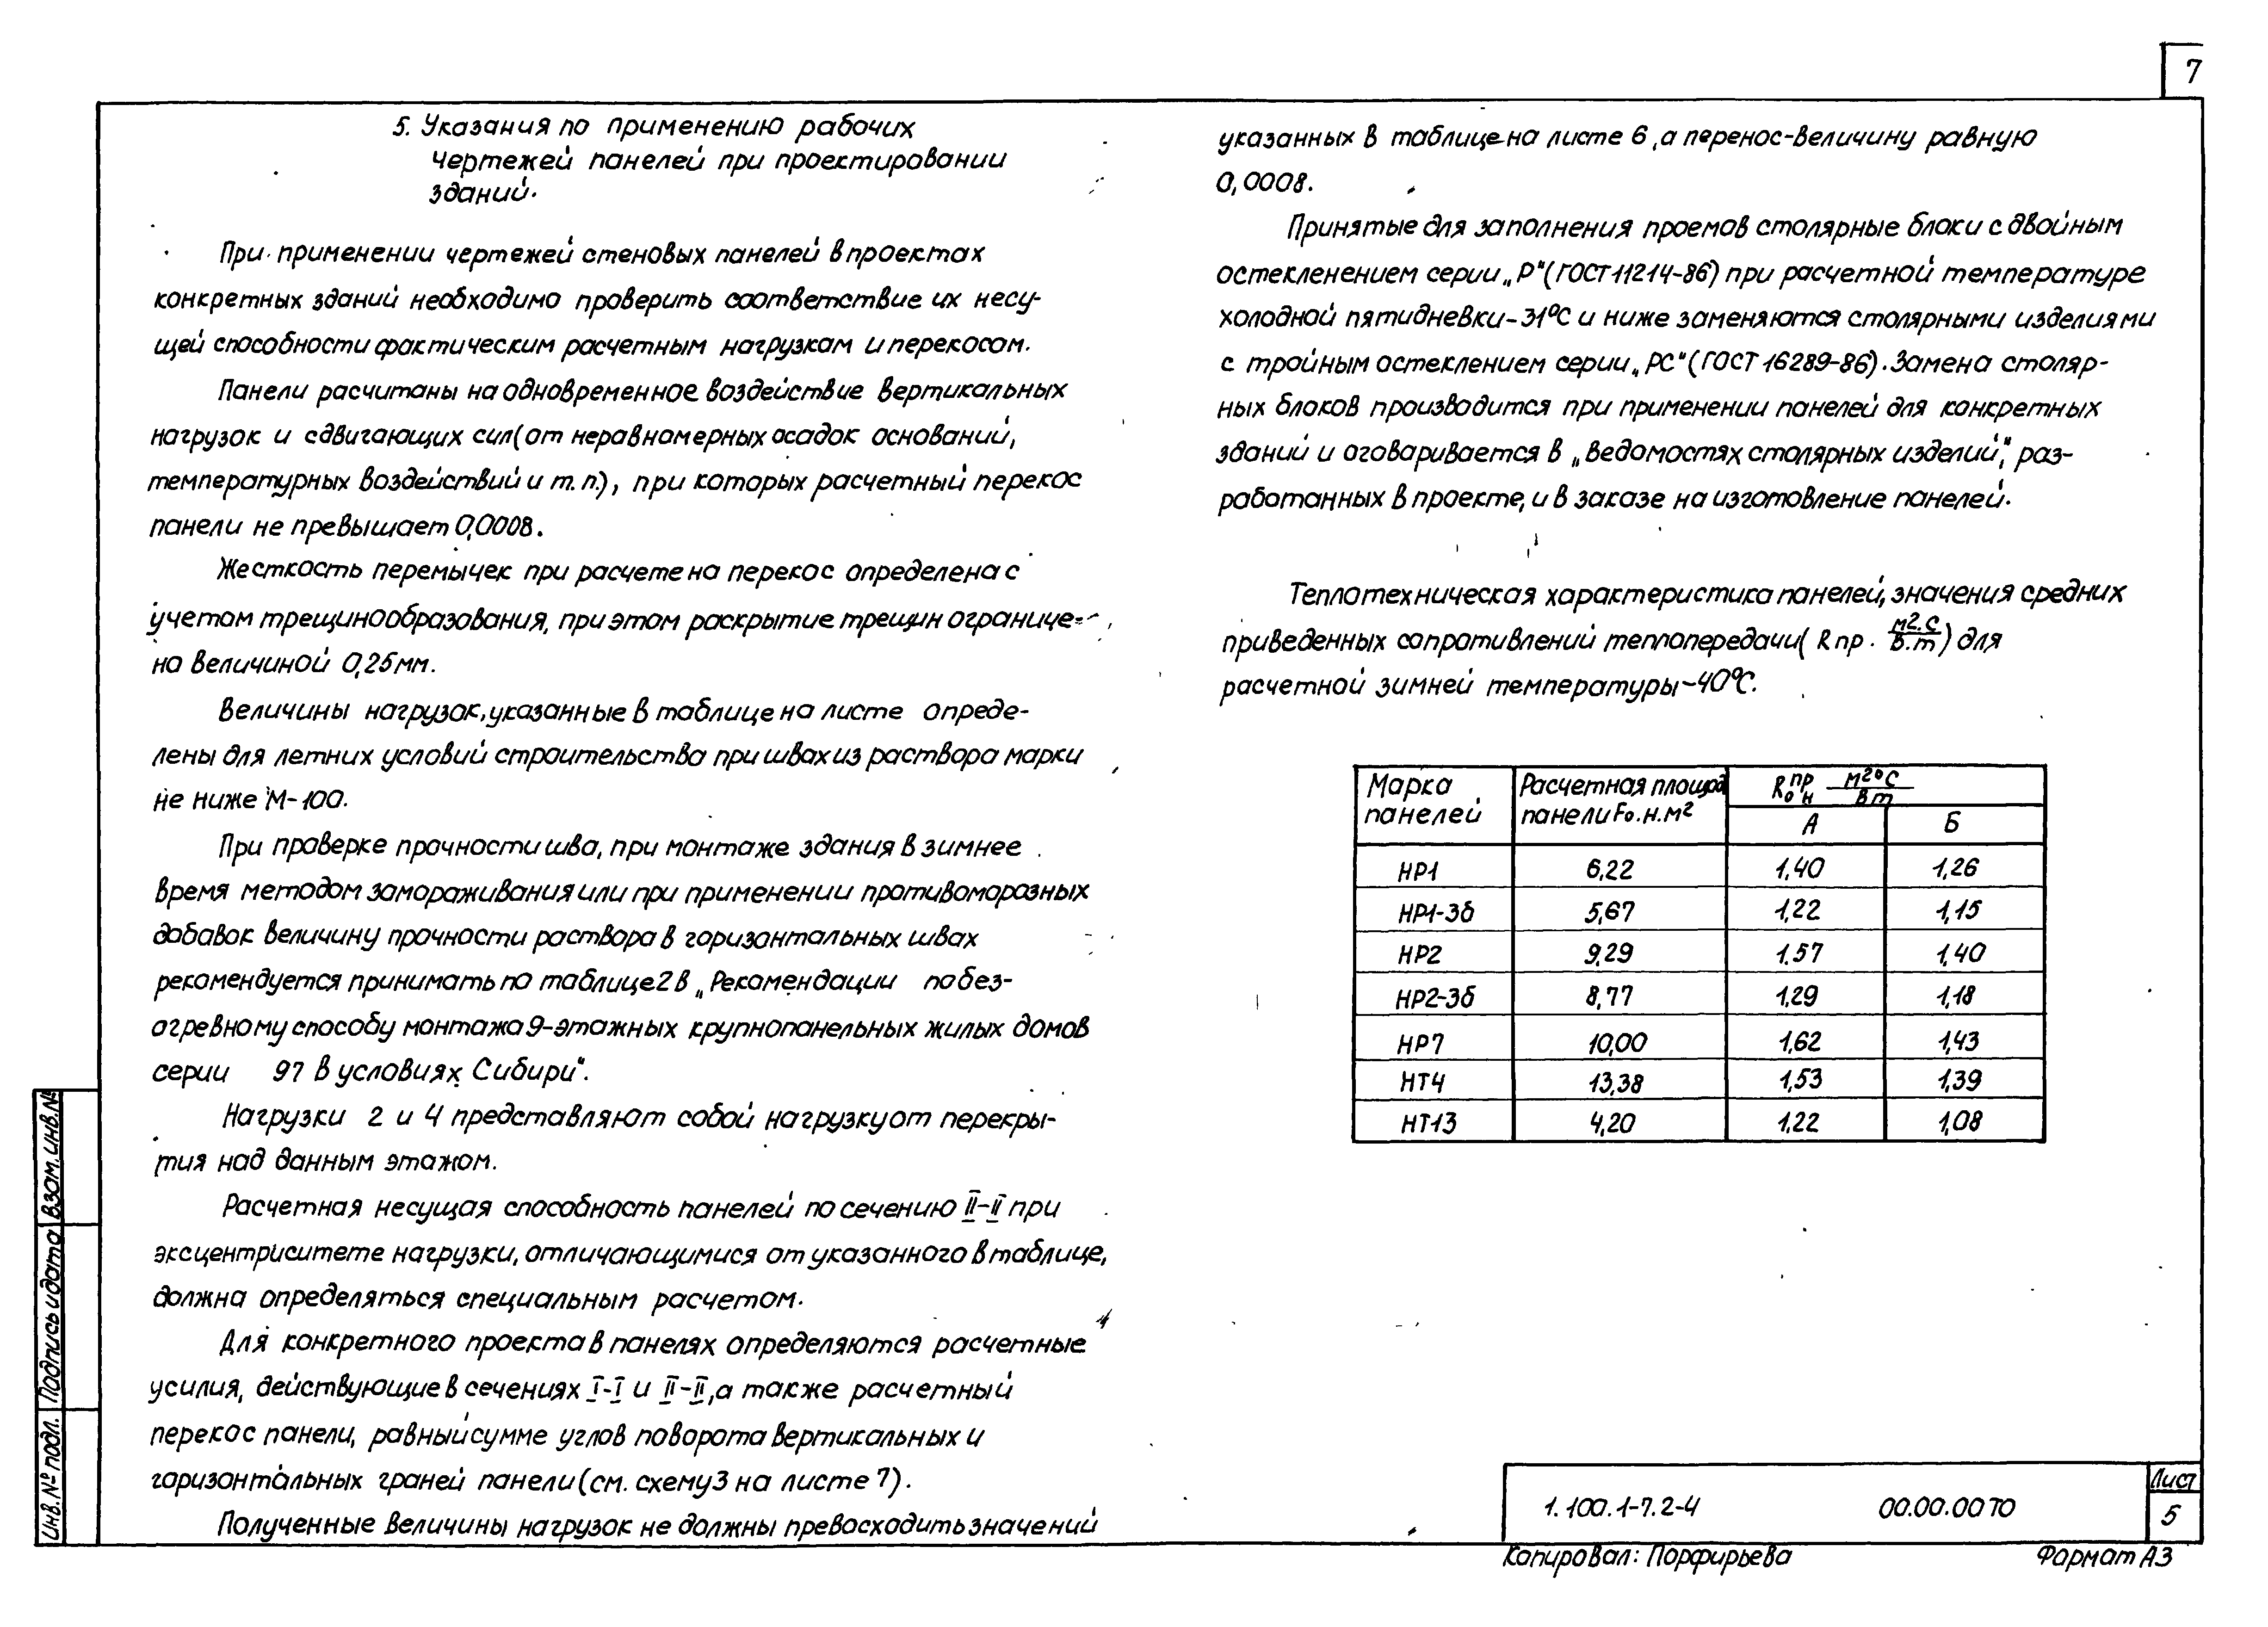 7
5. Указания по применению рабочих
чертежей панелей при проектировании
зданий.
При применении чертежей стеновых панелей в проектах
конкретных зданий необходимо проверить соответствие их несу-
щей способности фактическим расчетным нагрузкам и перекосам.
Панели расчитаны на одновременное воздействие вертикальных
нагрузок и сдвигающих сил (от неравномерных осадок оснований,
температурных воздействий и т.п.), при которых расчетный перекос
панели не превышает 0,0008.
Жесткость перемычек при расчете на перекос определена с
учетом трещинообразования, при этом раскрытие трещин ограниче-
но величиной 0,25мм.
Величины нагрузок, указанные в таблице на листе опреде-
лены для летних условий строительства при швах из раствора марки
не ниже М-100.
При проверке прочности шва, при монтаже здания в зимнее
время методом замораживания или при применении противоморозных
добавок величину прочности раствора в горизонтальных швах
рекомендуется принимать по таблице 2 в „Рекомендации по без-
огревному способу монтажа 9-этажных крупнопанельных жилых домов
серии 97 в условиях Сибири".
Нагрузки 2 и 4 представляют собой нагрузку от перекры-
тия над данным этажом.
Расчетная несущая способность панелей по сечению II-II при
эксцентриситете нагрузки, отличающимися от указанного в таблице,
должна определяться специальным расчетом.
Для конкретного проекта в панелях определяются расчетные
усилия, действующие в сечениях I-I и II-II, а также расчетный
перекос панели, равный сумме углов поворота вертикальных и
горизонтальных граней панели (см. схему 3 на листе 7).
Полученные величины нагрузок не должны превосходить значений
указанных в таблице на листе 6, а перенос-величину равную
0,0008.
Принятые для заполнения проемов столярные блоки с двойным
остекленением серии „Р" (ГОСТ 11214-86) при расчетной температуре
холодной пятидневки -31°С и ниже заменяются столярными изделиями
с тройным остеклением серии „РС" (ГОСТ 16289-86). Замена столяр-
ных блоков производится при применении панелей для конкретных
зданий и оговаривается в „Ведомостях столярных изделий", раз-
работанных в проекте, и в заказе на изготовление панелей.
Теплотехническая характеристика панелей, значения средних
приведенных сопротивлений теплопередачи (Rпр. м2.С/В.т) для
расчетной зимней температуры -40°С.
Марка панелей | Расчетная площад панели Fо.н.м² | Rо н пр м²°С/Вт
А | Б
НР1 | 6,22 | 1,40 | 1,26
НР1-3б | 5,67 | 1,22 | 1,15
НР2 | 9,29 | 1.57 | 1,40
НР2-3б | 8,77 | 1,29 | 1,18
НР7 | 10,00 | 1,62 | 1,43
НТ4 | 13,38 | 1,53 | 1,39
НТ13 | 4,20 | 1,22 | 1,08
Инв.№ подл. Подпись и дата Взам.инв.№
1.100.1-7.2-4 00.00.00ТО
Лист
5
Копировал: Порфирьева Формат А3